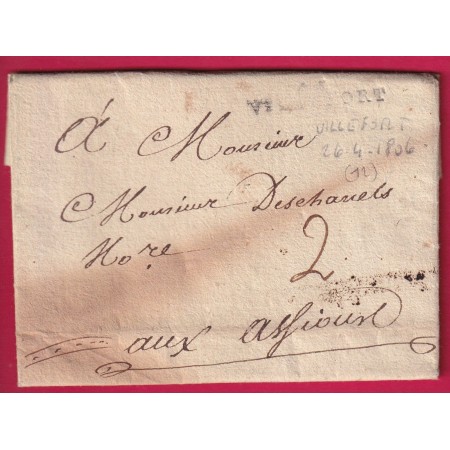 VILLEFORT
VILLEFORT
26-4-1806
(12)
á Monsieur
Monsieur Deschanels
No.re
2
aux assions